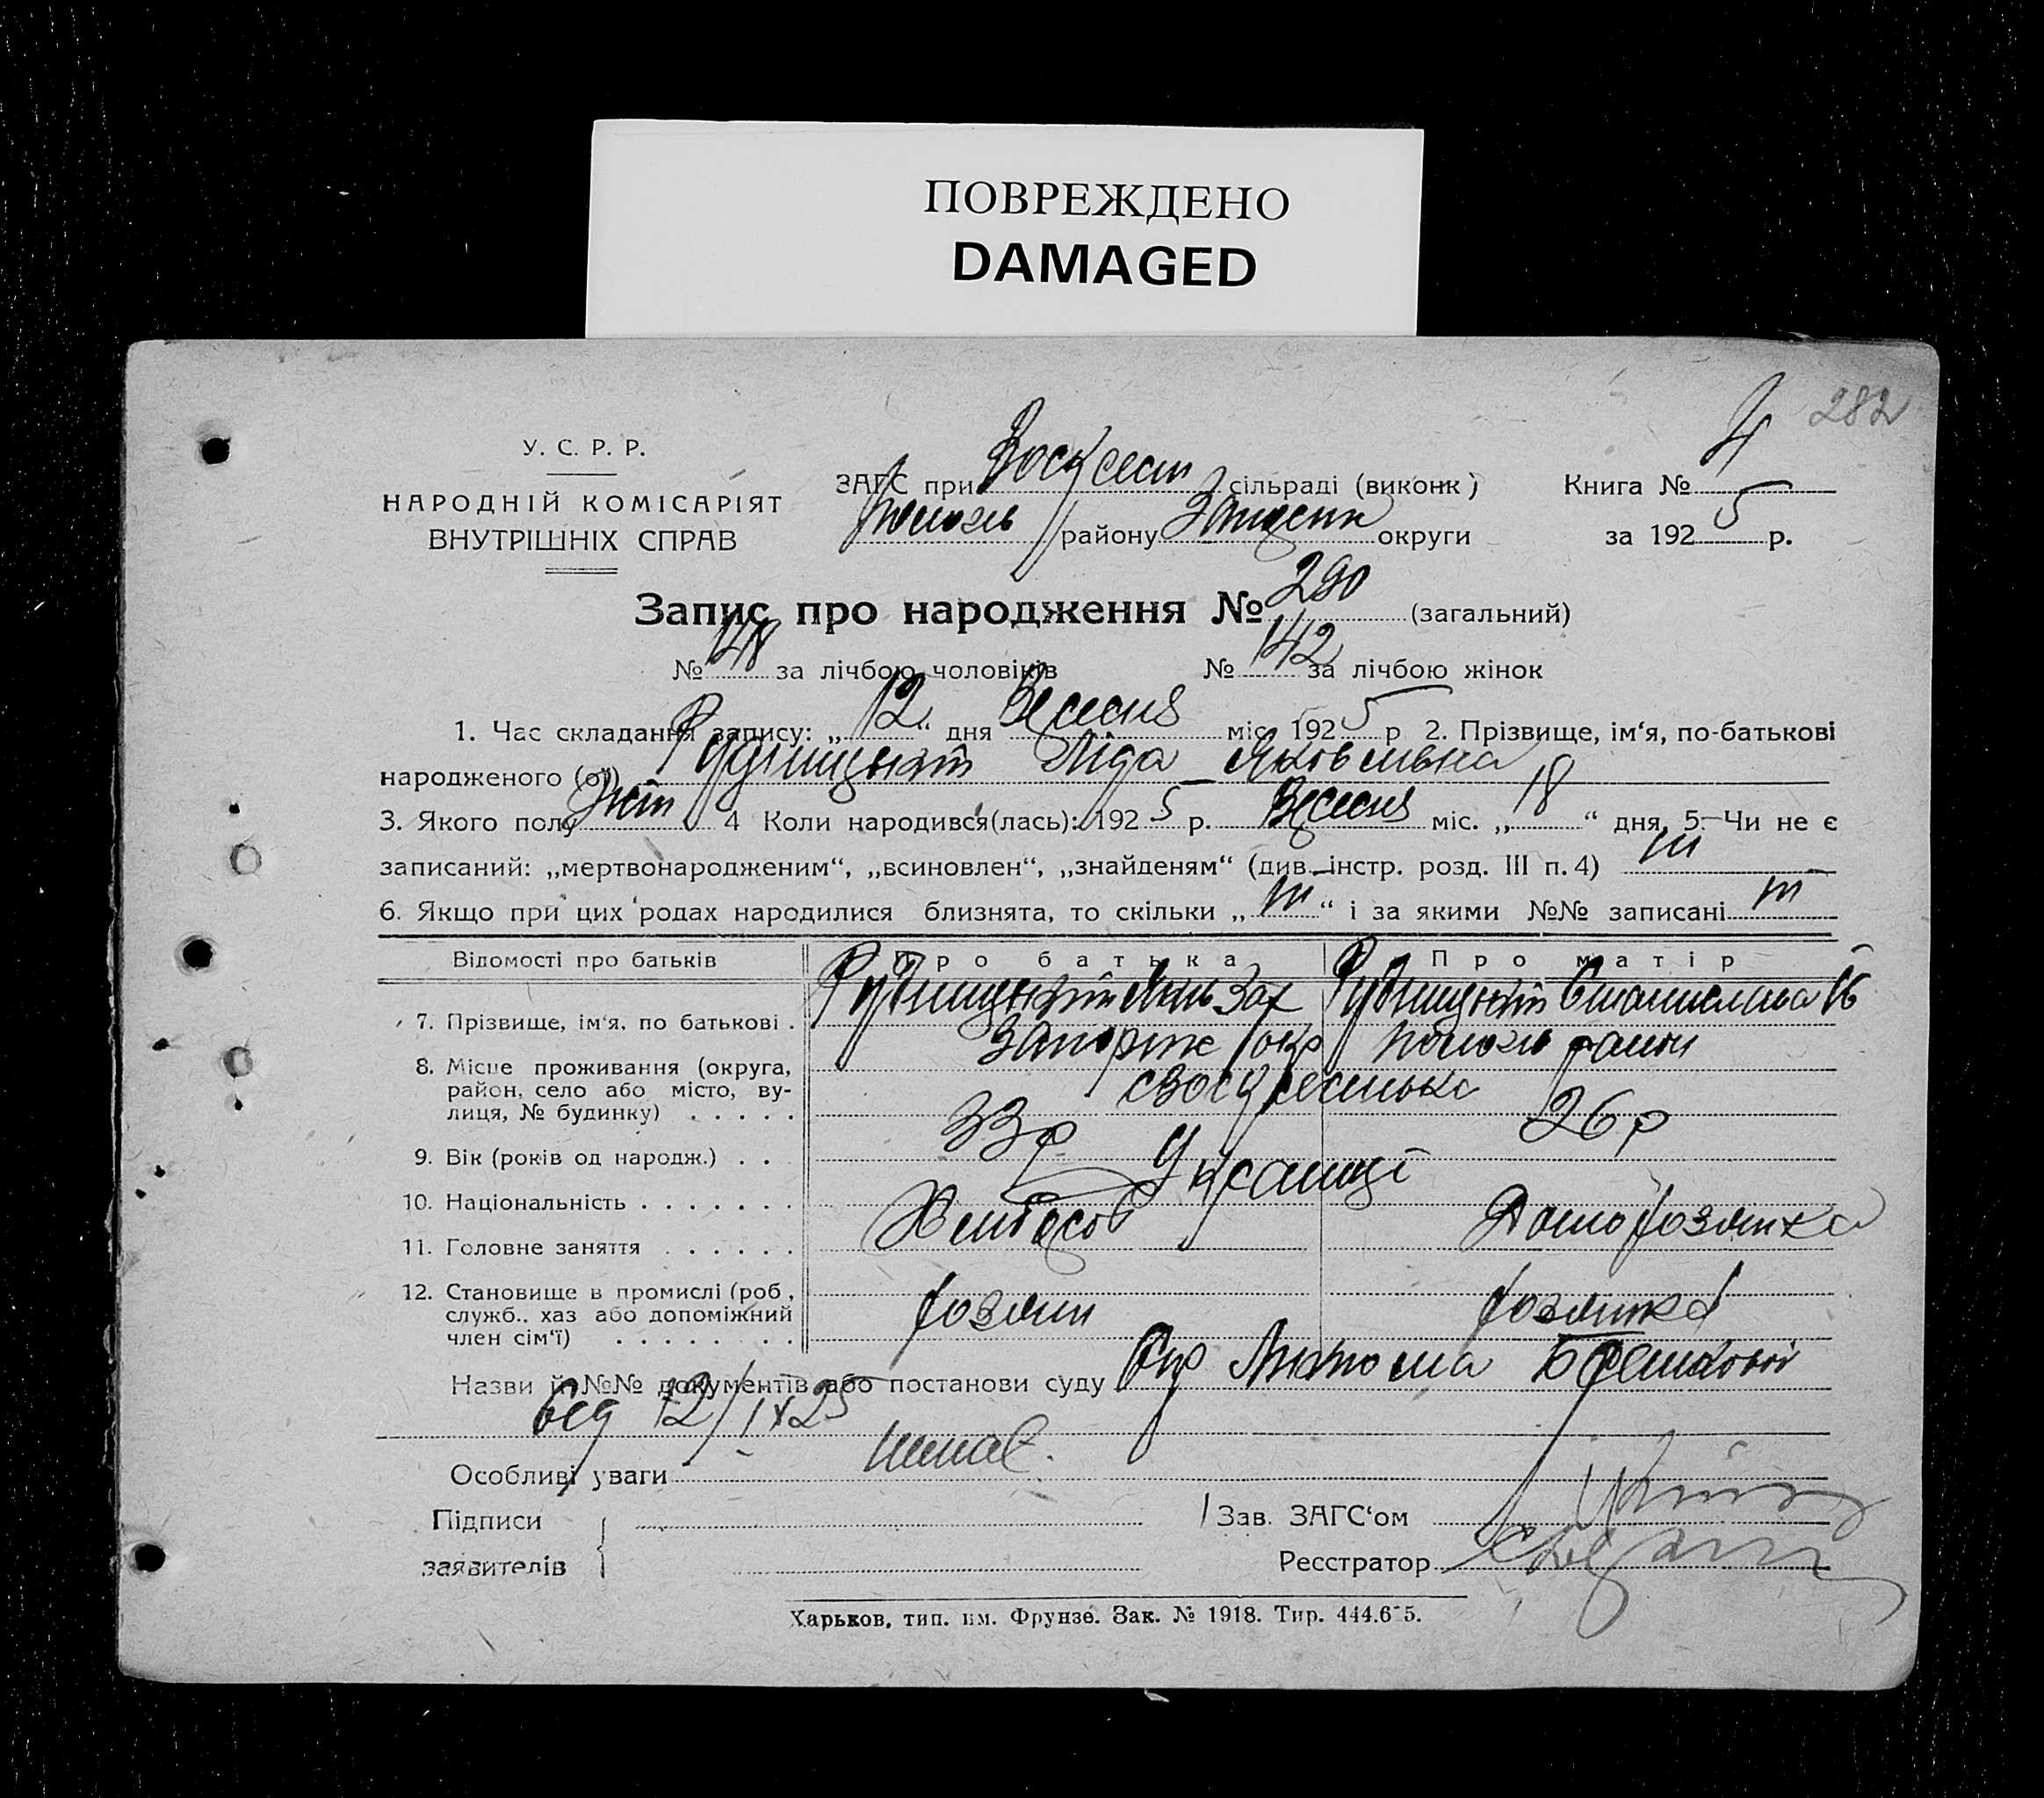 ПОВРЕЖДЕНО
DAMAGED
282
У. С. Р. Р.
НАРОДНІЙ КОМІСАРІЯТ
ВНУТРІШНІХ СПРАВ
ЗАГС при Воскресен сільраді (виконк)
району округи
Книга № 4
за 192 5 р.
Запис про народження № 290 (загальний)
№ 148 за лічбою чоловіків № 142 за лічбою жінок
1. Час складання запису: „ 12 “ дня Вересня міс. 192 5 р 2. Прізвище, ім‘я, по-батькові
народженого (ої) Ліда Яковлевна
3. Якого полу жін 4 Коли народився(лась): 192 5 р. Вересня міс. „ 18 “ дня, 5. Чи не є
записаний: „мертвонародженим“, „всиновлен“, „знайденям“ (див. інстр. розд. III п. 4) ні
6. Якщо при цих родах народилися близнята, то скільки „ ні “ і за якими №№ записані ні
Відомості про батьків Про батька Про матір
7. Прізвище, ім‘я, по батькові .
8. Місце проживання (округа,
район, село або місто, ву-
лиця, № будинку) . . . . .
Запоріж окр Пологів район
с Воскресенька
9. Вік (років од народж.) . . 33 р 26 р
10. Національність . . . . . . . Українці
11. Головне заняття . . . . . . Хлібороб Домохозяйка
12. Становище в промислі (роб.,
служб., хаз або допоміжний
член сім‘ї) . . . . . . . .
хозяин хозяйка
Назви й №№ документів або постанови суду
12/IX 25
Особливі уваги Немає.
Підписи
заявителів
Зав. ЗАГС‘ом
Реєстратор
Харьков, тип. им. Фрунзе. Зак. № 1918. Тир. 444.6 5.